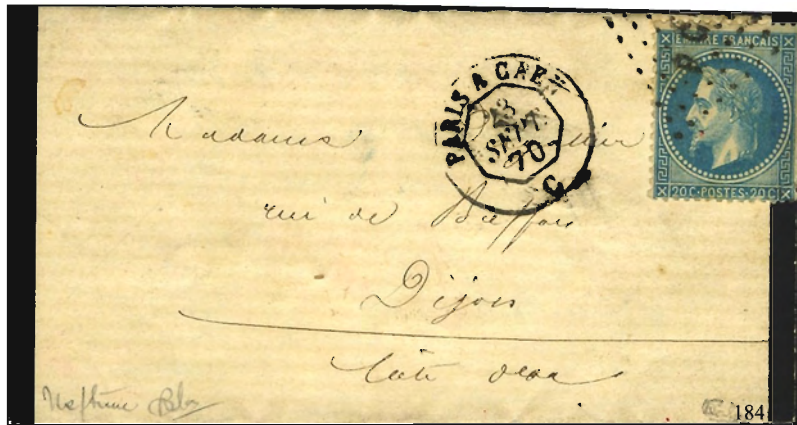 PARIS A CAEN
23
SEPT.
70
C
EMPIRE FRANÇAIS
20C·POSTES·20C
PC
Madame
rue de Buffon
Dijon
Côte d'or
Neptune
184